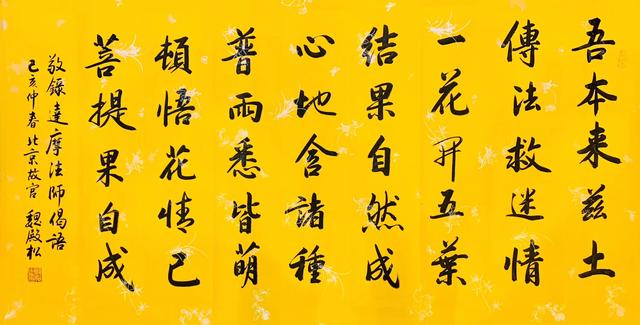 吾本来兹土
傳法救迷情
一花开五葉
結果自然成
心地含諸種
普雨悉皆萌
頓悟花情已
菩提果自成
敬錄達摩法師偈語
己亥仲春北京故宫 魏殿松